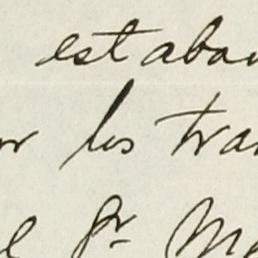 estaba
los tra
Sr. Ma